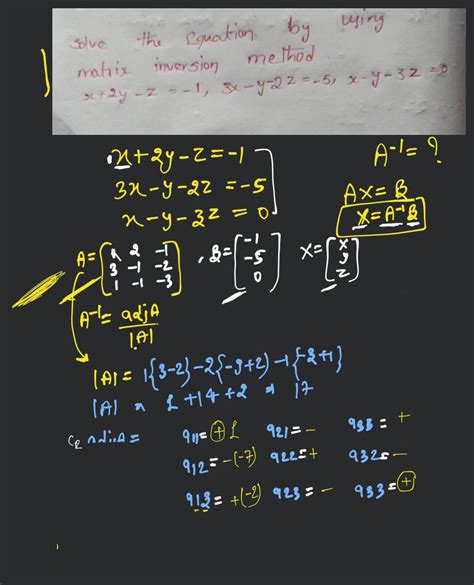 Solve the Equation, by using
matrix inversion method.
x+2y-z=-1, 3x-y-2z=-5, x-y-3z=0
x+2y-z=-1
3x-y-2z=-5
x-y-3z=0
A⁻¹=?
AX=B
X=A⁻¹B
A=[1 2 -1
3 -1 -2
1 -1 -3]
,B=[-1
-5
0]
X=[x
y
z]
A⁻¹=adjA
|A|
|A|= 1{3-2}-2{-9+2}-1{-3+1}
|A| = 1+14+2 = 17
adjA=
a11=+1 a21=- a33=+
a12=-(-7) a22=+ a32=-
a13=+(-2) a23=- a33=+